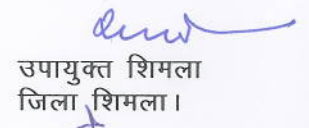 उपायुक्त शिमला
जिला शिमला।